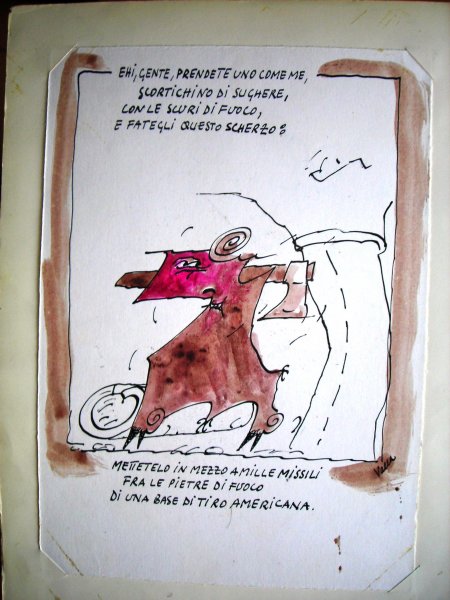 EHI, GENTE, PRENDETE UNO COME ME,
SCORTICHINO DI SUGHERE,
CON LE SCURI DI FUOCO,
E FATEGLI QUESTO SCHERZO:
METTETELO IN MEZZO A MILLE MISSILI
FRA LE PIETRE DI FUOCO
DI UNA BASE DI TIRO AMERICANA.